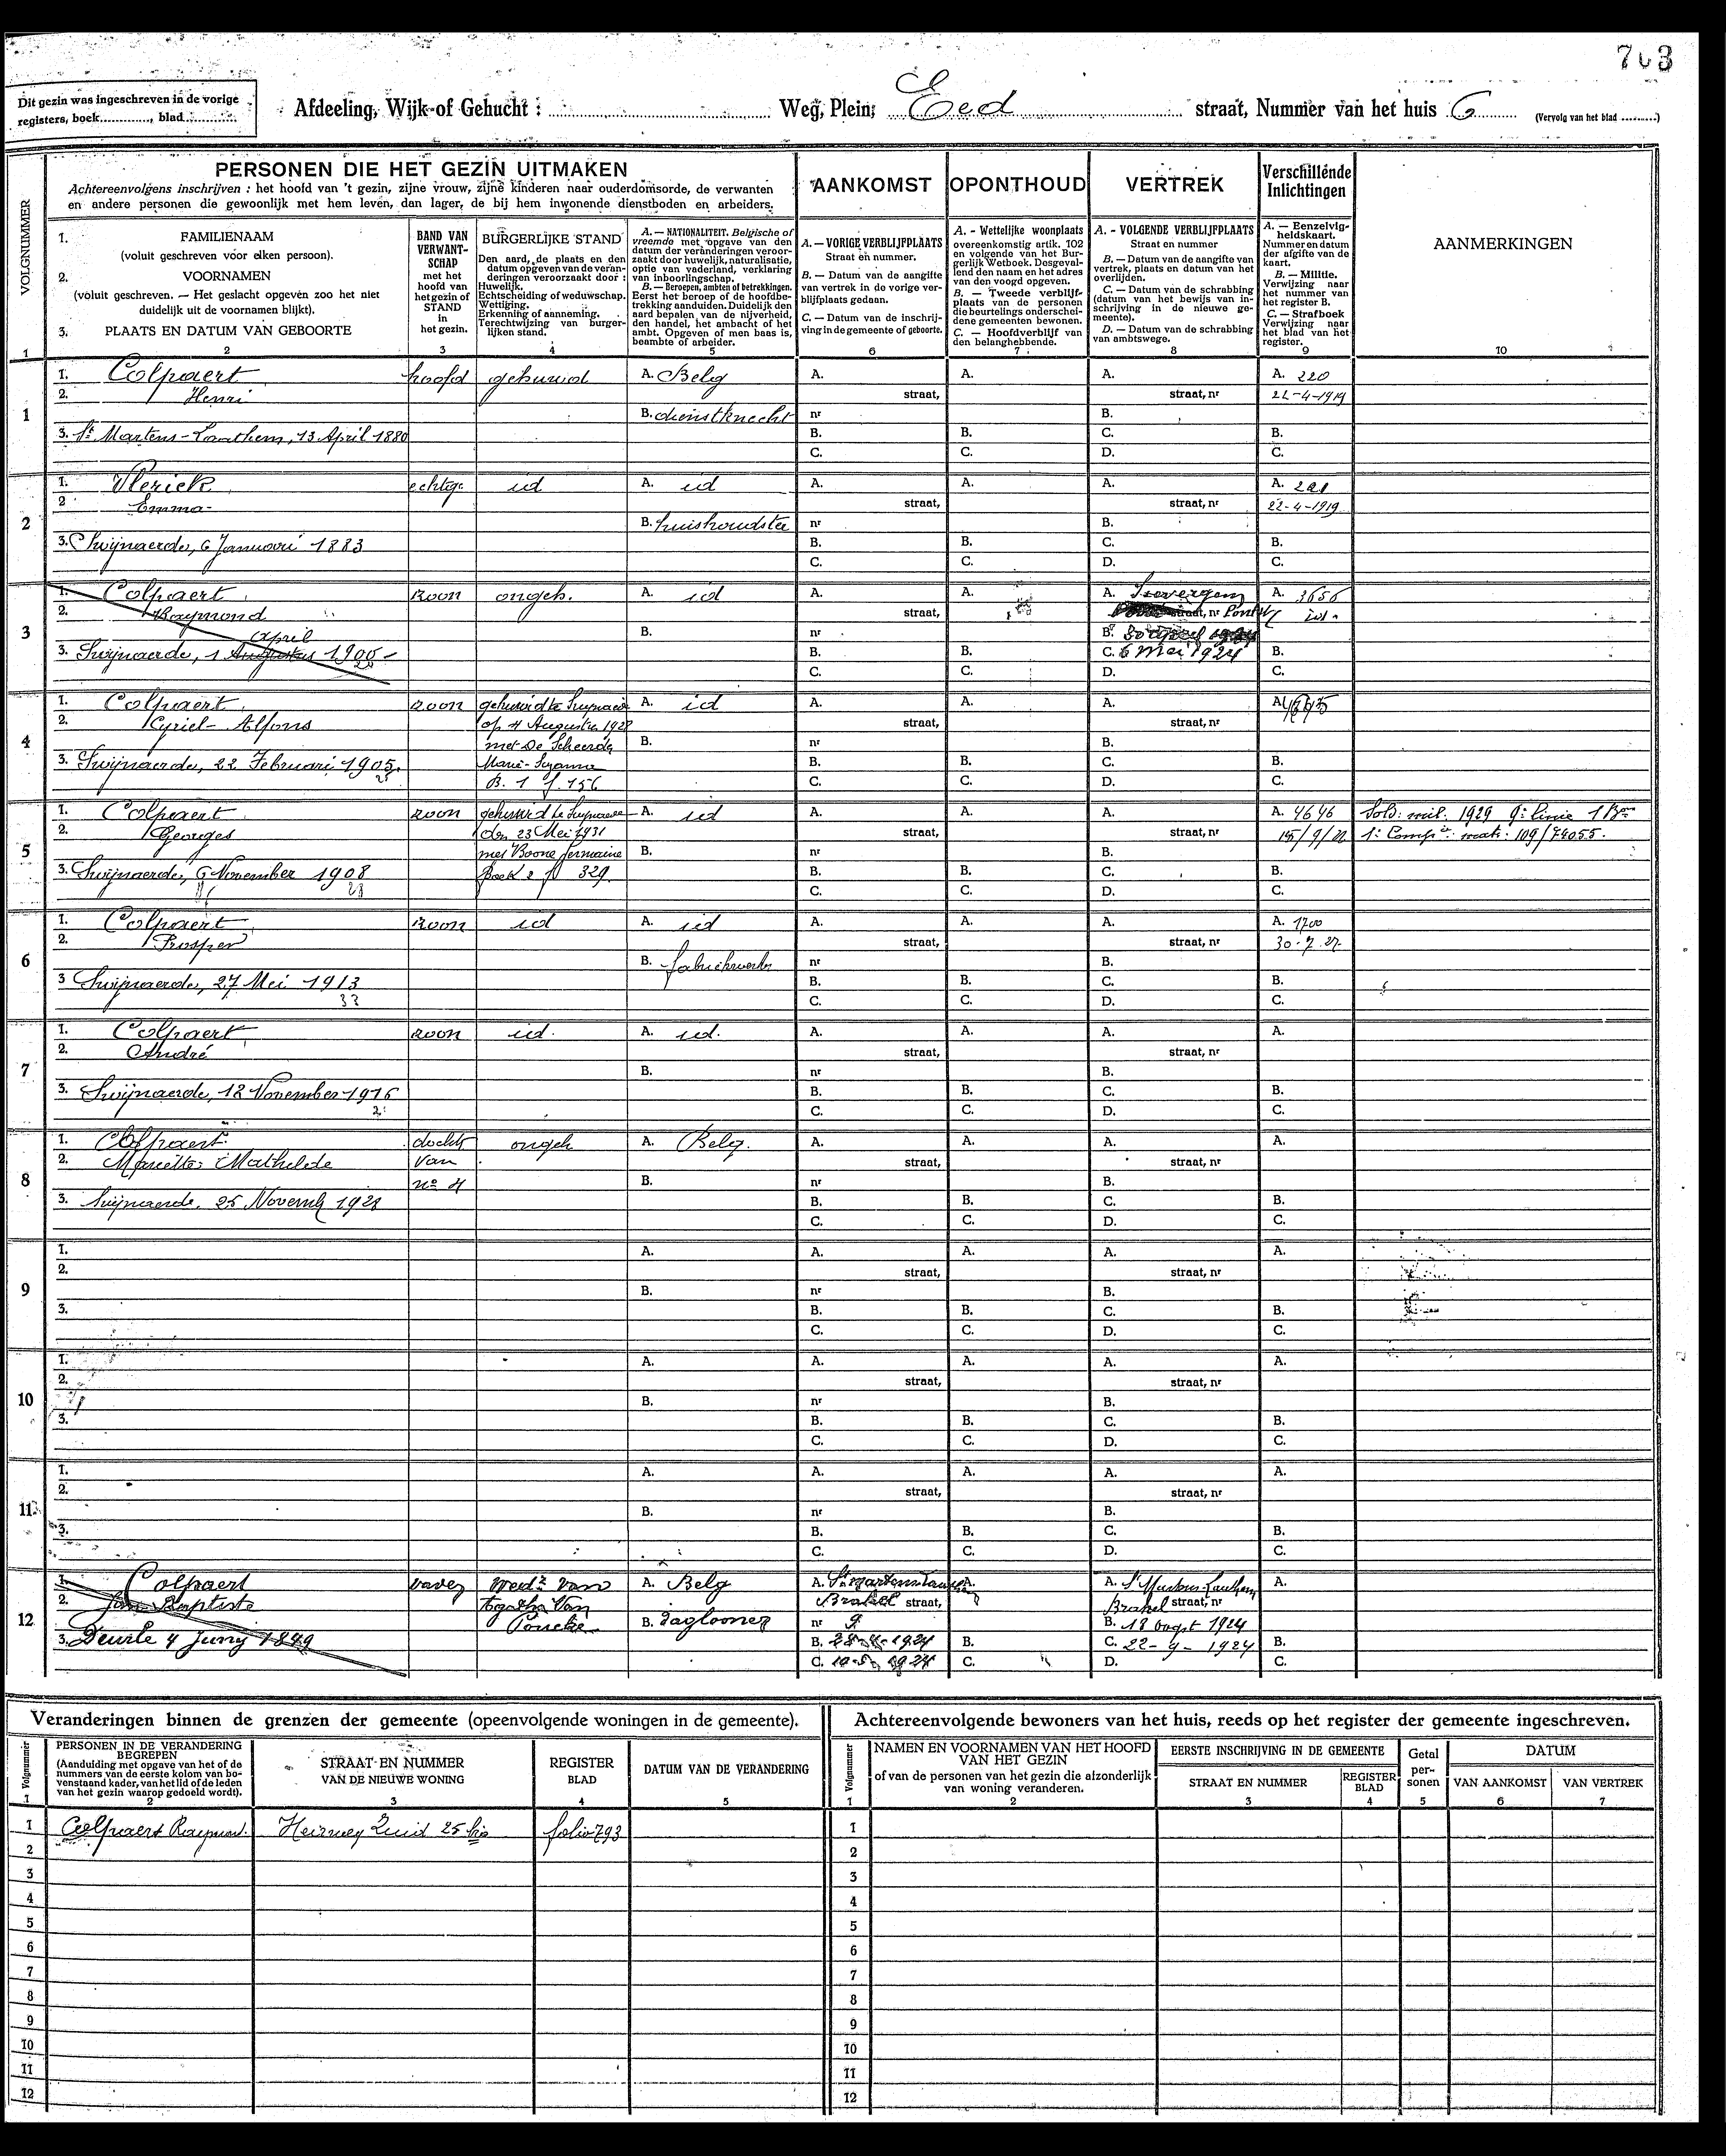 763
Dit gezin was ingeschreven in de vorige
registers, boek............, blad............
Afdeeling, Wijk of Gehucht : Weg, Plein; Eed straat, Nummer van het huis 6 (Vervolg van het blad ..........)
VOLGNUMMER
1
PERSONEN DIE HET GEZIN UITMAKEN
Achtereenvolgens inschrijven : het hoofd van 't gezin, zijne vrouw, zijne kinderen naar ouderdomsorde, de verwanten
en andere personen die gewoonlijk met hem leven, dan lager, de bij hem inwonende dienstboden en arbeiders.
1. FAMILIENAAM
(voluit geschreven voor elken persoon).
2. VOORNAMEN
(voluit geschreven. — Het geslacht opgeven zoo het niet
duidelijk uit de voornamen blijkt).
3. PLAATS EN DATUM VAN GEBOORTE
2
BAND VAN
VERWANT-
SCHAP
met het
hoofd van
het gezin of
STAND
in
het gezin.
3
BURGERLIJKE STAND
Den aard, de plaats en den
datum opgeven van de veran-
deringen veroorzaakt door :
Huwelijk.
Echtscheiding of weduwschap.
Wettiging.
Erkenning of aanneming.
Terechtwijzing van burger-
lijken stand.
4
A. — NATIONALITEIT. Belgische of
vreemde met opgave van den
datum der veranderingen veroor-
zaakt door huwelijk, naturalisatie,
optie van vaderland, verklaring
van inboorlingschap.
B. — Beroepen, ambten of betrekkingen.
Eerst het beroep of de hoofdbe-
trekking aanduiden. Duidelijk den
aard bepalen van de nijverheid,
den handel, het ambacht of het
ambt. Opgeven of men baas is,
beambte of arbeider.
5
AANKOMST
A. — VORIGE VERBLIJFPLAATS
Straat en nummer.
B. — Datum van de aangifte
van vertrek in de vorige ver-
blijfplaats gedaan.
C. — Datum van de inschrij-
ving in de gemeente of geboorte.
6
OPONTHOUD
A. - Wettelijke woonplaats
overeenkomstig artik. 102
en volgende van het Bur-
gerlijk Wetboek. Desgeval-
lend den naam en het adres
van den voogd opgeven.
B. — Tweede verblijf-
plaats van de personen
die beurtelings onderschei-
dene gemeenten bewonen.
C. — Hoofdverblijf van
den belanghebbende.
7
VERTREK
A. - VOLGENDE VERBLIJFPLAATS
Straat en nummer
B. — Datum van de aangifte van
vertrek, plaats en datum van het
overlijden.
C. — Datum van de schrabbing
(datum van het bewijs van in-
schrijving in de nieuwe ge-
meente).
D. — Datum van de schrabbing
van ambtswege.
8
Verschillende
Inlichtingen
A. — Eenzelvig-
heidskaart.
Nummer en datum
der afgifte van de
kaart.
B. — Militie.
Verwijzing naar
het nummer van
het register B.
C. — Strafboek
Verwijzing naar
het blad van het
register.
9
AANMERKINGEN
10
1
1. Colpaert hoofd gehuwd A. Belg A. A. A. A. 220
2. Henri straat, straat, nr 22-4-1919
B. dienstknecht nr B.
3. St Martens-Laathem, 13 April 1880 B. B. C. B.
C. C. D. C.
2
1. Vlerick echtge id A. id A. A. A. A. 221
2 Emma straat, straat, nr 22-4-1919
B. huishoudster nr B.
3. Swijnaerde, 6 Januari 1883 B. B. C. B.
C. C. D. C.
3
1. Colpaert zoon ongeh. A. id A. A. A. A. 3656
2. Raymond straat, straat, nr
april B. nr B.
3. Swijnaerde, 1 Augustus 1900 B. B. C. 6 Mei 1924 B.
C. C. D. C.
4
1. Colpaert zoon gehuwd te Swynaerde A. id A. A. A. A.
2. Cyriel-Alfons op 4 Augustus 1928 straat, straat, nr
met De Scheerder B. nr B.
3. Swijnaerde, 22 Februari 1905. Marie-Suzanna B. B. C. B.
B. 1 f. 156 C. C. D. C.
5
1. Colpaert zoon gehuwd te Swynaerde A. id A. A. A. A. 4646 Sold. mil. 1929 9e linie 1 Bon
2. Georges den 23 Mei 1931 straat, straat, nr 1e Compie matr: 109/74055.
met Boone Germaine B. nr B.
3. Swijnaerde, 6 November 1908 Boek 2 f 329. B. B. C. B.
28 C. C. D. C.
6
1. Colpaert zoon id A. id A. A. A. A. 1700
2. Prosper straat, straat, nr 30-7-27
B. fabriekwerker nr B.
3 Swijnaerde, 27 Mei 1913 B. B. C. B.
33 C. C. D. C.
7
1. Colpaert zoon id. A. id. A. A. A. A.
2. André straat, straat, nr
B. nr B.
3. Swijnaerde, 12 November 1916 B. B. C. B.
C. C. D. C.
8
1. Colpaert dochtr ongeh A. Belg. A. A. A. A.
2. Mariette Mathilde van straat, straat, nr
no 4 B. nr B.
3. Swijnaerde. 25 Novemb 1928 B. B. C. B.
C. C. D. C.
9
1. A. A. A. A. A.
2. straat, straat, nr
B. nr B.
3. B. B. C. B.
C. C. D. C.
10
1. A. A. A. A. A.
2. straat, straat, nr
B. nr B.
3. B. B. C. B.
C. C. D. C.
11
1. A. A. A. A. A.
2. straat, straat, nr
B. nr B.
3. B. B. C. B.
C. C. D. C.
12
1. Colpaert vader Wedr van A. Belg A. St Martens-Lathem A. A. St Martens-Lauthem A.
2. Jan Baptiste Agatha Van Brakel straat, Brakel straat, nr
Poucke B. daglooner nr 9 B. 18 oogst 1924
3. Deurle 4 Juny 1849 B. B. C. 22-9-1924 B.
C. C. D. C.
Veranderingen binnen de grenzen der gemeente (opeenvolgende woningen in de gemeente).
Volgnummer
1
PERSONEN IN DE VERANDERING
BEGREPEN
(Aanduiding met opgave van het of de
nummers van de eerste kolom van bo-
venstaand kader, van het lid of de leden
van het gezin waarop gedoeld wordt).
2
STRAAT EN NUMMER
VAN DE NIEUWE WONING
3
REGISTER
BLAD
4
DATUM VAN DE VERANDERING
5
1 Colpaert Raymond. Heirweg Zuid 25 bis folio 793
2
3
4
5
6
7
8
9
10
11
12
Achtereenvolgende bewoners van het huis, reeds op het register der gemeente ingeschreven.
Volgnummer
1
NAMEN EN VOORNAMEN VAN HET HOOFD
VAN HET GEZIN
of van de personen van het gezin die afzonderlijk
van woning veranderen.
2
EERSTE INSCHRIJVING IN DE GEMEENTE
STRAAT EN NUMMER
3
REGISTER
BLAD
4
Getal
per-
sonen
5
DATUM
VAN AANKOMST
6
VAN VERTREK
7
1
2
3
4
5
6
7
8
9
10
11
12